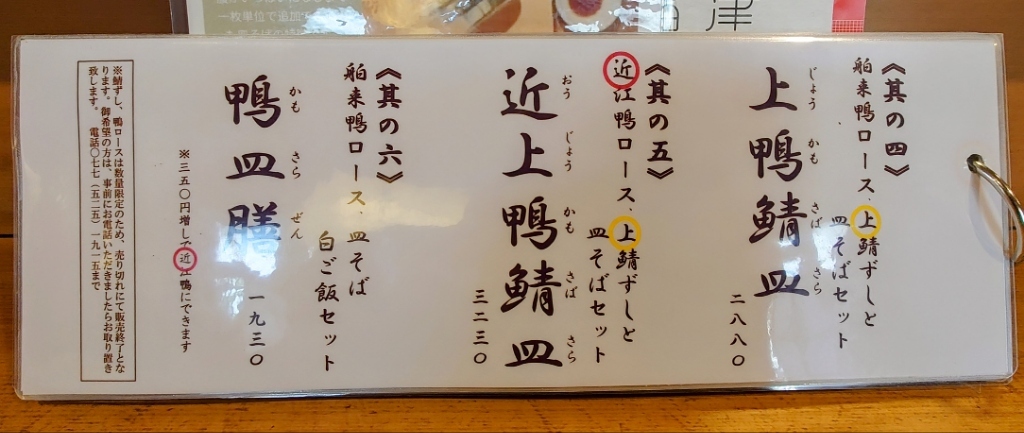 一枚単位で追加
津
《其の四》
舶来鴨ロース、上鯖ずしと
皿そばセット
じょう かも さば さら
上鴨鯖皿
二八八〇
《其の五》
近江鴨ロース、上鯖ずしと
皿そばセット
おう じょう かも さば さら
近上鴨鯖皿
三二三〇
《其の六》
舶来鴨ロース、皿そば
白ご飯セット
かも さら ぜん
鴨皿膳
一九三〇
※三五〇円増しで近江鴨にできます
※鯖ずし、鴨ロースは数量限定のため、売り切れにて販売終了とな
ります。御希望の方は、事前にお電話いただきましたらお取り置き
致します。 電話〇七七(五二五)一九一五まで